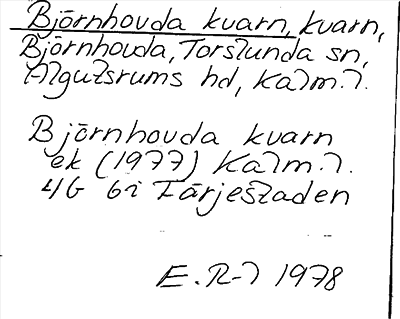 Björnhovda kvarn, kvarn,
Björnhovda, Torslunda sn,
Algutsrums hd, Kalm.l.
Björnhovda kvarn
ek (1977) Kalm.l.
4G 6i Färjestaden
E.R-l 1978